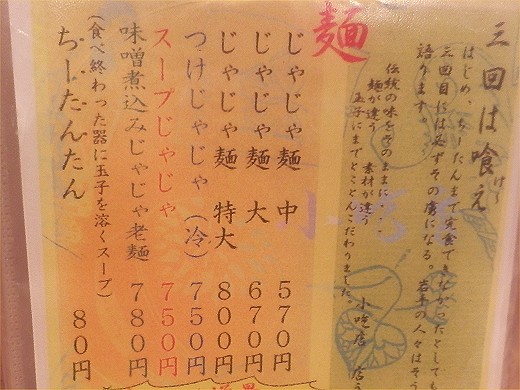 三回は喰え
けえ
はじめ、ちーたんまで完食できなかったとして
三回目には必ずその虜になる。岩手の人々はそう
語ります。
伝統の味をそのままに・・
麺が違う 素材が違う
玉子にまでとことんこだわりました。
小吃店 店
麺
じゃじゃ麺 中 570円
じゃじゃ麺 大 670円
じゃじゃ麺 特大 800円
つけじゃじゃ(冷) 750円
スープじゃじゃ 750円
味噌煮込みじゃじゃ老麺 780円
(食べ終わった器に玉子を溶くスープ)
ちーたんたん 80円